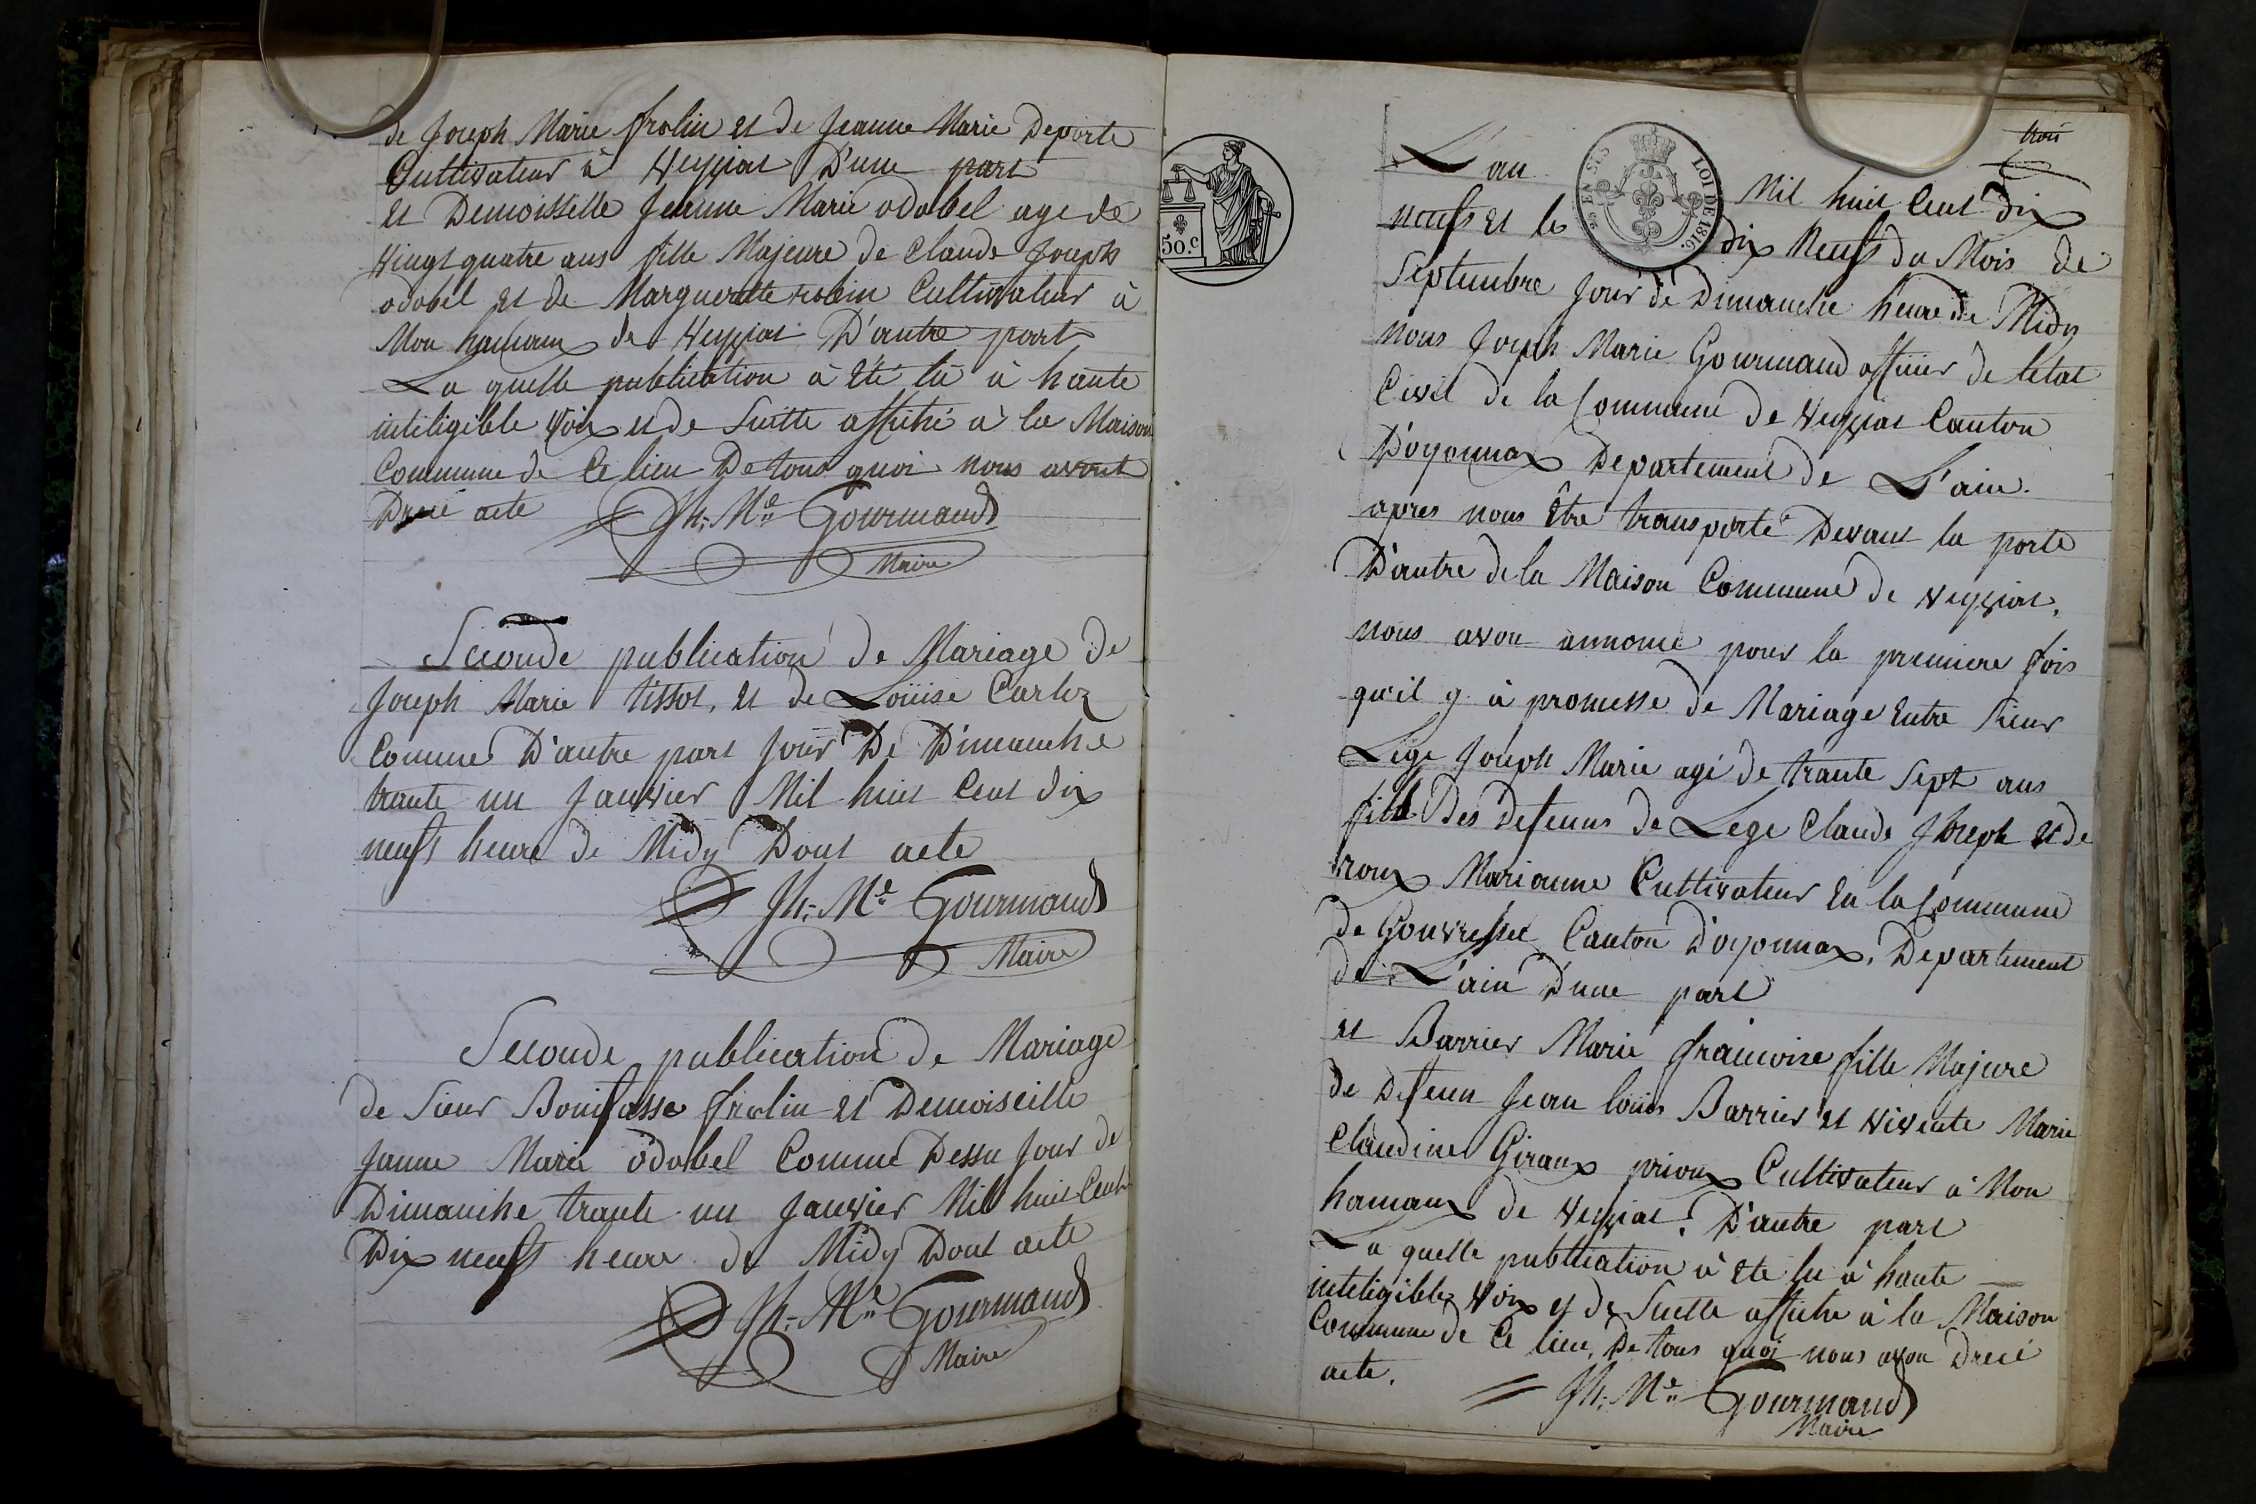 de Joseph Marie frolin et de Jeanne Marie Deporte
Cultivateur à Veyziat D'une part
et Demoisselle Jeanne Marie odobel age de
Vingt quatre ans fille Majeure de Claude Joseph
odobel et de Marguerite robin Cultivateur à
Mon hamaux de Veyziat D'autre part
La quelle publication à été lu à haute
inteligible Voix et de Suitte affiché à la Maison
Commune de Ce lieu De tous quoi nous avont
Dréié acte
Jh: Me Gourmand
Maire
Seconde publication de Mariage de
Joseph Marie tissot, et de Louise Carloz
Comme D'autre part Jour De Dimanche
trante un Janvier Mil huit Cent dix
neufs heure de Midy Dont acte
Jh: Me Gourmand
Maire
Seconde publication de Mariage
de Sieur Bonifasse frolin et Demoiseille
Janne Marie odobel Comme Dessu Jour de
Dimanche trante un Janvier Mil huit Cent
Dix neufs heure de Midy Dont acte
Jh: Me Gourmand
Maire
50.c
25 EN SUS
LOI DE 1816.
trois
L'an Mil huit Cent dix
neufs et le dix Neufs du Mois de
Septembre Jour de Dimanche heure de Midy
Nous Joseph Marie Gourmand officier de letat
Civil de la Commune de Veyziat Canton
D'oyonnax Departement de L'ain.
apres nous être transporté Devant la porte
D'autre de la Maison Commune de Veyziat,
nous avon annoncé pour la premiere fois
qu'il y à promesse de Mariage Entre Sieur
Lége Joseph Marie agé de trante Sept ans
fils Des Defenus de Lege Claude Joseph et de
roux Marianne Cultivateur En la Commune
de Gouvresset Canton D'oyonnax, Departement
de L'ain D'une part
et Barrier Marie francoise fille Majeure
de Defeun Jean louis Barrier et Vivente Marie
Claudine Giraux prioux Cultivateur à Mon
hamaux de Veyziat. D'autre part
La quelle publication à été lu à haute
inteligible Voix et de Suitte affiche à la Maison
Commune de Ce lieu, De tous quoi nous avon Dreié
acte.
Jh: Me Gourmand
Maire